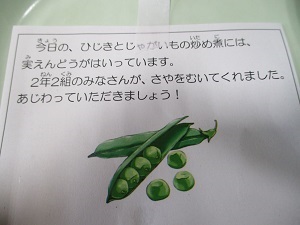 今日の、ひじきとじゃがいもの炒め煮には、
実えんどうがはいっています。
２年２組のみなさんが、さやをむいてくれました。
あじわっていただきましょう！